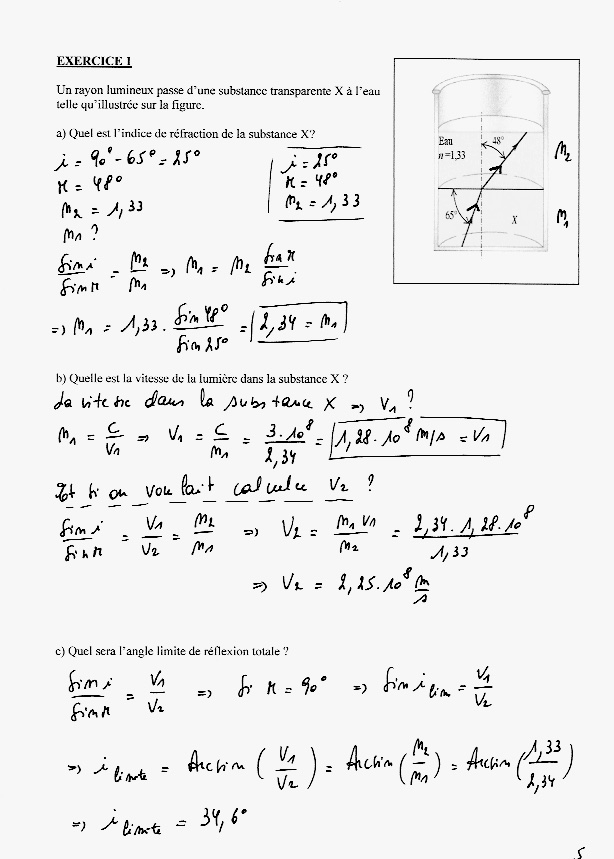 EXERCICE 1
Un rayon lumineux passe d'une substance transparente X à l'eau
telle qu'illustrée sur la figure.
a) Quel est l'indice de réfraction de la substance X?
i = 90° - 65° = 25°
r = 48°
n₂ = 1,33
n₁ ?
i = 25°
r = 48°
n₂ = 1,33
Eau
n =1,33
48°
65°
X
n₂
n₁
sin i / sin r = n₂ / n₁ => n₁ = n₂ sin r / sin i
=> n₁ = 1,33 . sin 48° / sin 25° = 2,34 = n₁
b) Quelle est la vitesse de la lumière dans la substance X ?
La vitesse dans la substance X => V₁ ?
n₁ = C / V₁ => V₁ = C / n₁ = 3.10⁸ / 2,34 = 1,28.10⁸ m/s = V₁
Et si on voulait calculer V₂ ?
sin i / sin r = V₁ / V₂ = n₂ / n₁ => V₂ = n₁ V₁ / n₂ = 2,34 . 1,28.10⁸ / 1,33
=> V₂ = 2,25.10⁸ m/s
c) Quel sera l'angle limite de réflexion totale ?
sin i / sin r = V₁ / V₂ => si r = 90° => sin i lim = V₁ / V₂
=> i limite = Arcsin (V₁ / V₂) = Arcsin (n₂ / n₁) = Arcsin (1,33 / 2,34)
=> i limite = 34,6°
5